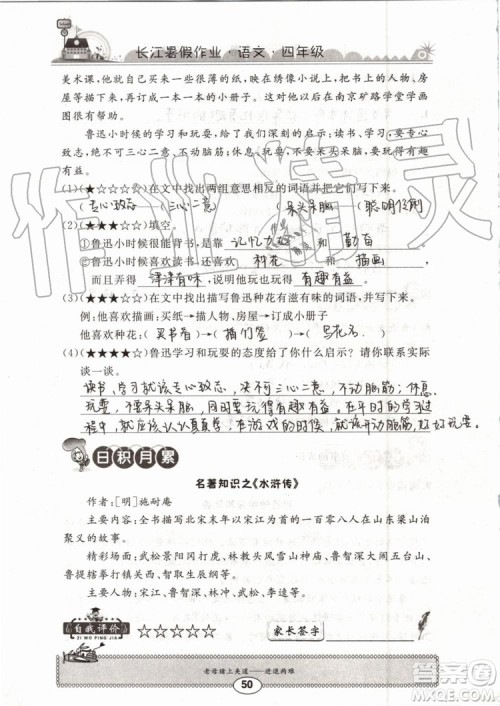 长江暑假作业·语文·四年级
美术课,他就自己买来一些很薄的纸,映在绣像小说上,把书上的人物、房
屋等描下来,再订成一本一本的小册子。这对他以后在南京矿路学堂学画
图很有帮助。
鲁迅小时候的学习和玩耍,给了我们深刻的启示:读书、学习,要专心
致志,绝不可三心二意、不动脑筋;休息、玩耍,不要呆头呆脑,而是要有趣
有益。
(1)(★★☆☆☆)在文中找出两组意思相反的词语并把它们写下来。
(专心致志)(三心二意)(呆头呆脑)(聪明伶俐)
(2)(★★★☆☆)填空。
①鲁迅小时候很能背书,是靠 记忆力 和 勤奋
②鲁迅小时候喜欢读书,还喜欢 种花 描画,
而且弄得 津津有味,说明他玩也玩得 有趣有益。
(3)(★★★☆☆)在文中找出描写鲁迅种花有滋有味的词语,并写下来。
例:他喜欢描画:买纸→描人物、房屋→订成小册子
他喜欢种花:(买书看)→(插竹签)→(
(4)(★★★★☆)鲁迅学习和玩耍的态度给了你什么启示?请你联系实际
谈一谈。
读书、学习就该专心致志,决不可三心二意,不动脑筋;休息、
玩耍,不要呆头呆脑,而要有趣有益。在平时的学习过
程中,就应该认认真真学,不懂就问,放松时就好好玩耍。
日积月累
名著知识之《水浒传》
作者:[明]施耐庵
主要内容:全书描写北宋末年以宋江为首的一百零八人在山东梁山泊
聚义的故事。
精彩场面:武松景阳冈打虎、林教头风雪山神庙、鲁智深大闹五台山、
鲁提辖拳打镇关西、智取生辰纲等。
主要人物:宋江、鲁智深、林冲、武松、李逵等。
自我评价 ☆☆☆☆☆ 家长签字
ZI WO PING JIA
老母猪上夹道——进退两难
50
作业精灵
答案圈